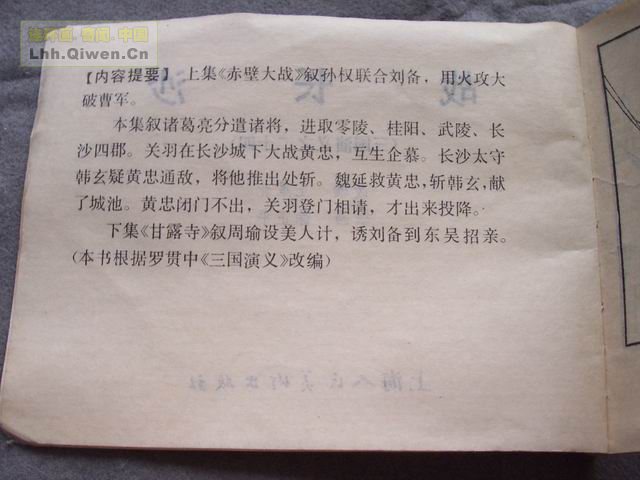 连环画·香闺·中国
Lhh.Qiwen.Cn
【内容提要】 上集《赤壁大战》叙孙权联合刘备，用火攻大
破曹军。
本集叙诸葛亮分遣诸将，进取零陵、桂阳、武陵、长
沙四郡。关羽在长沙城下大战黄忠，互生企慕。长沙太守
韩玄疑黄忠通敌，将他推出处斩。魏延救黄忠，斩韩玄，献
了城池。黄忠闭门不出，关羽登门相请，才出来投降。
下集《甘露寺》叙周瑜设美人计，诱刘备到东吴招亲。
(本书根据罗贯中《三国演义》改编)
战长沙
上海人民美术出版社